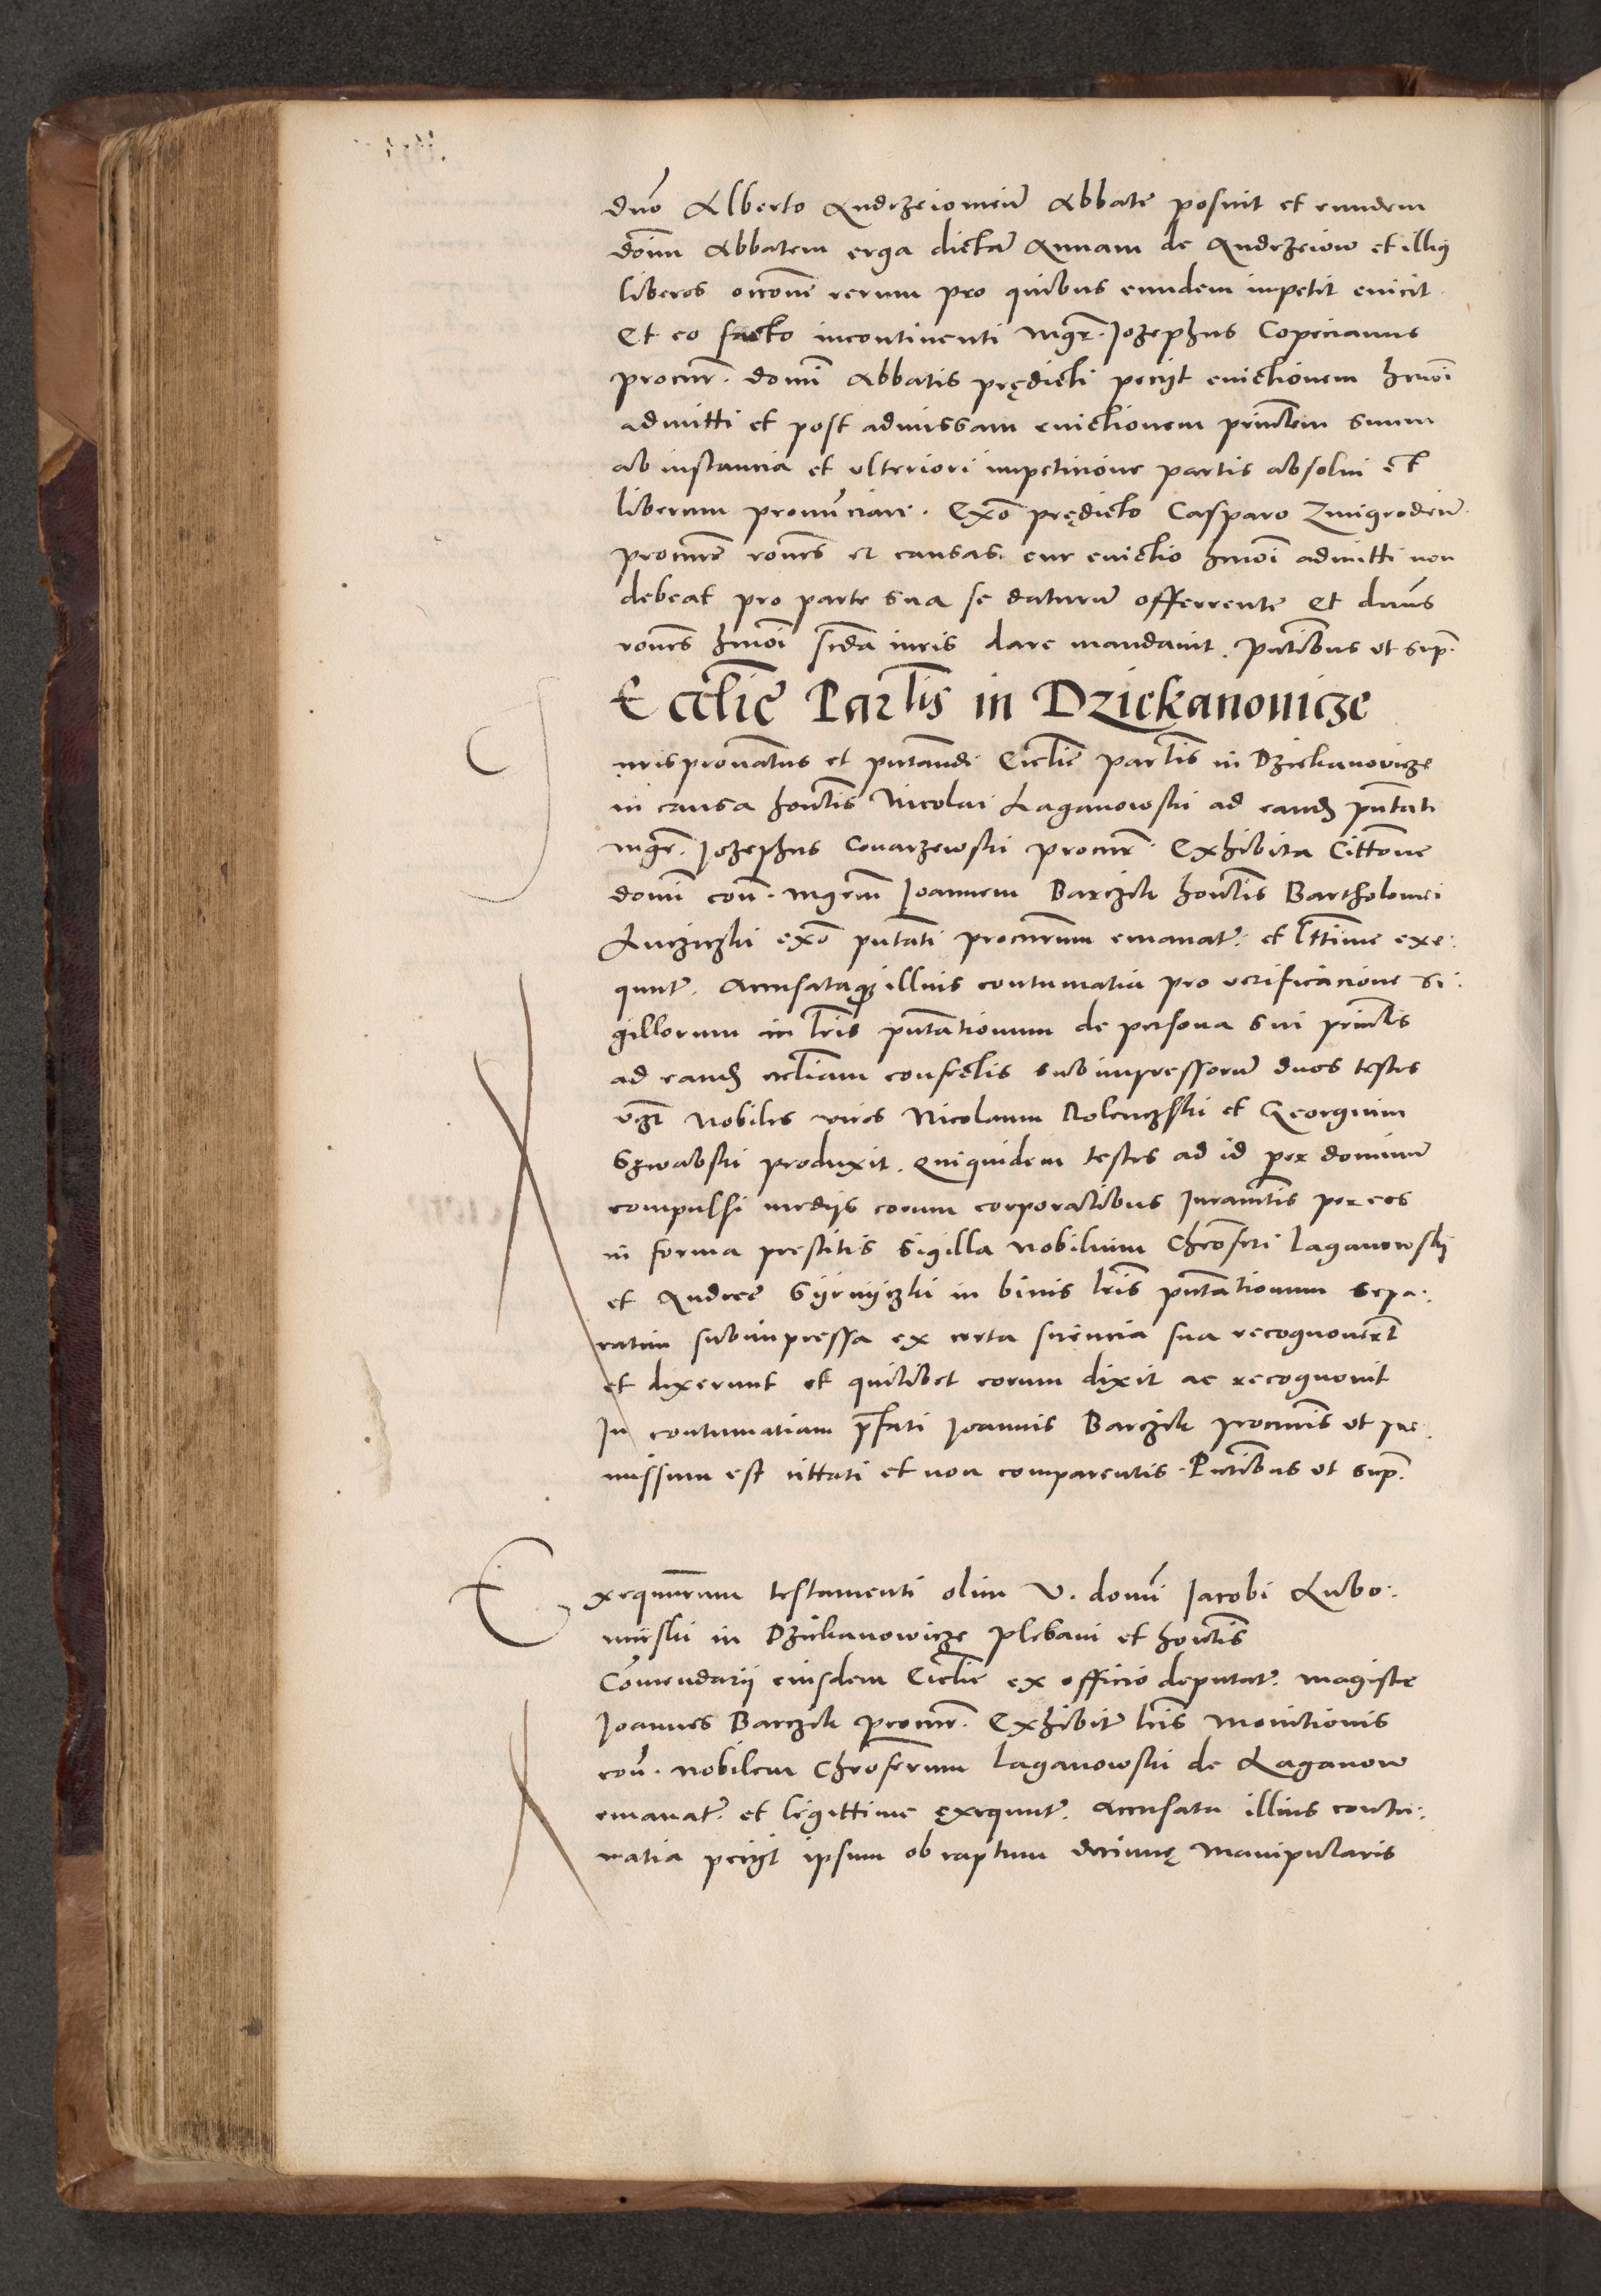 dno Alberto Andrzeiouień Abbate posuit et eundem
domm Abbatem erga dictā Annam de Andrzeiow et illiꝰ
liberos occōne rerum pro quibus eundem impetit euicit.
Et eo facto incontinenti mgr. Jozephus Copecianus
procur. domī Abbatis prędicti pecijt euictionem hmōi
admitti et post admissam euictionem princlem suum
ab instancia et vlteriori impeticione partis absolui et
liberum pronūciari. Exo prędicto Casparo Zmigrodień
procure rōnes et causas. cur euictio hmōi admitti non
debeat pro parte sua se daturū offerrente Et dnūs
rōnes hmōi scdā iuris dare mandauit. Pntibus vt sup.
Ecclie Parlis in Dziekanouicze
Jurispronatus et pntandi Ecclie parlis in Dziekanouicze
in causa honlis Nicolai Laganowski ad eandȝ pntati
mgr. Jozephus Conarzewski procur. Exhibita Cittōne
domī con. mgrm Joannem Barczik honlis Bartholomei
Luczijczki exo pntati procurm emanat. et lttime exe:
qunt. Accusataqȝ illius contumatia pro verificacione si:
gillorum in lris pntationum de persona sui princlis
ad eandȝ eccliam confectis subimpressorū duos testes
vȝt Nobiles viros Nicolaum Rolenczski et Georgium
Szwabski produxit. Quiquidem testes ad id per dominū
compulsi medijs eorum corporalibus Juramtis per eos
in forma prestitis sigilla nobilium Chrōferi Laganowskij
et Andree Gijrnijczki in binis lris pntationum sepa:
ratim subimpressa ex certa sciencia sua recognouerūt
et dixerunt et quilibet eorum dixit ac recognouit
In contumatiam pfati Joannis Barczik procuris vt pre:
missum est cittati et non comparentis. Pntibus vt sup.
Exequturum testamenti olim V. domī Jacobi Lubo:
mijski in Dziekanowicze plebani et honlis
Comendarij eiusdem Ecclie ex officio deputat. magister
Joannes Barczik procur. Exhibit lris Monictionis
con. nobilem Chroferum Laganowski de Laganow
emanat. et legittime exequnt. Accusata illius contu:
matia pecijt ipsum ob raptum decimę Manipularis